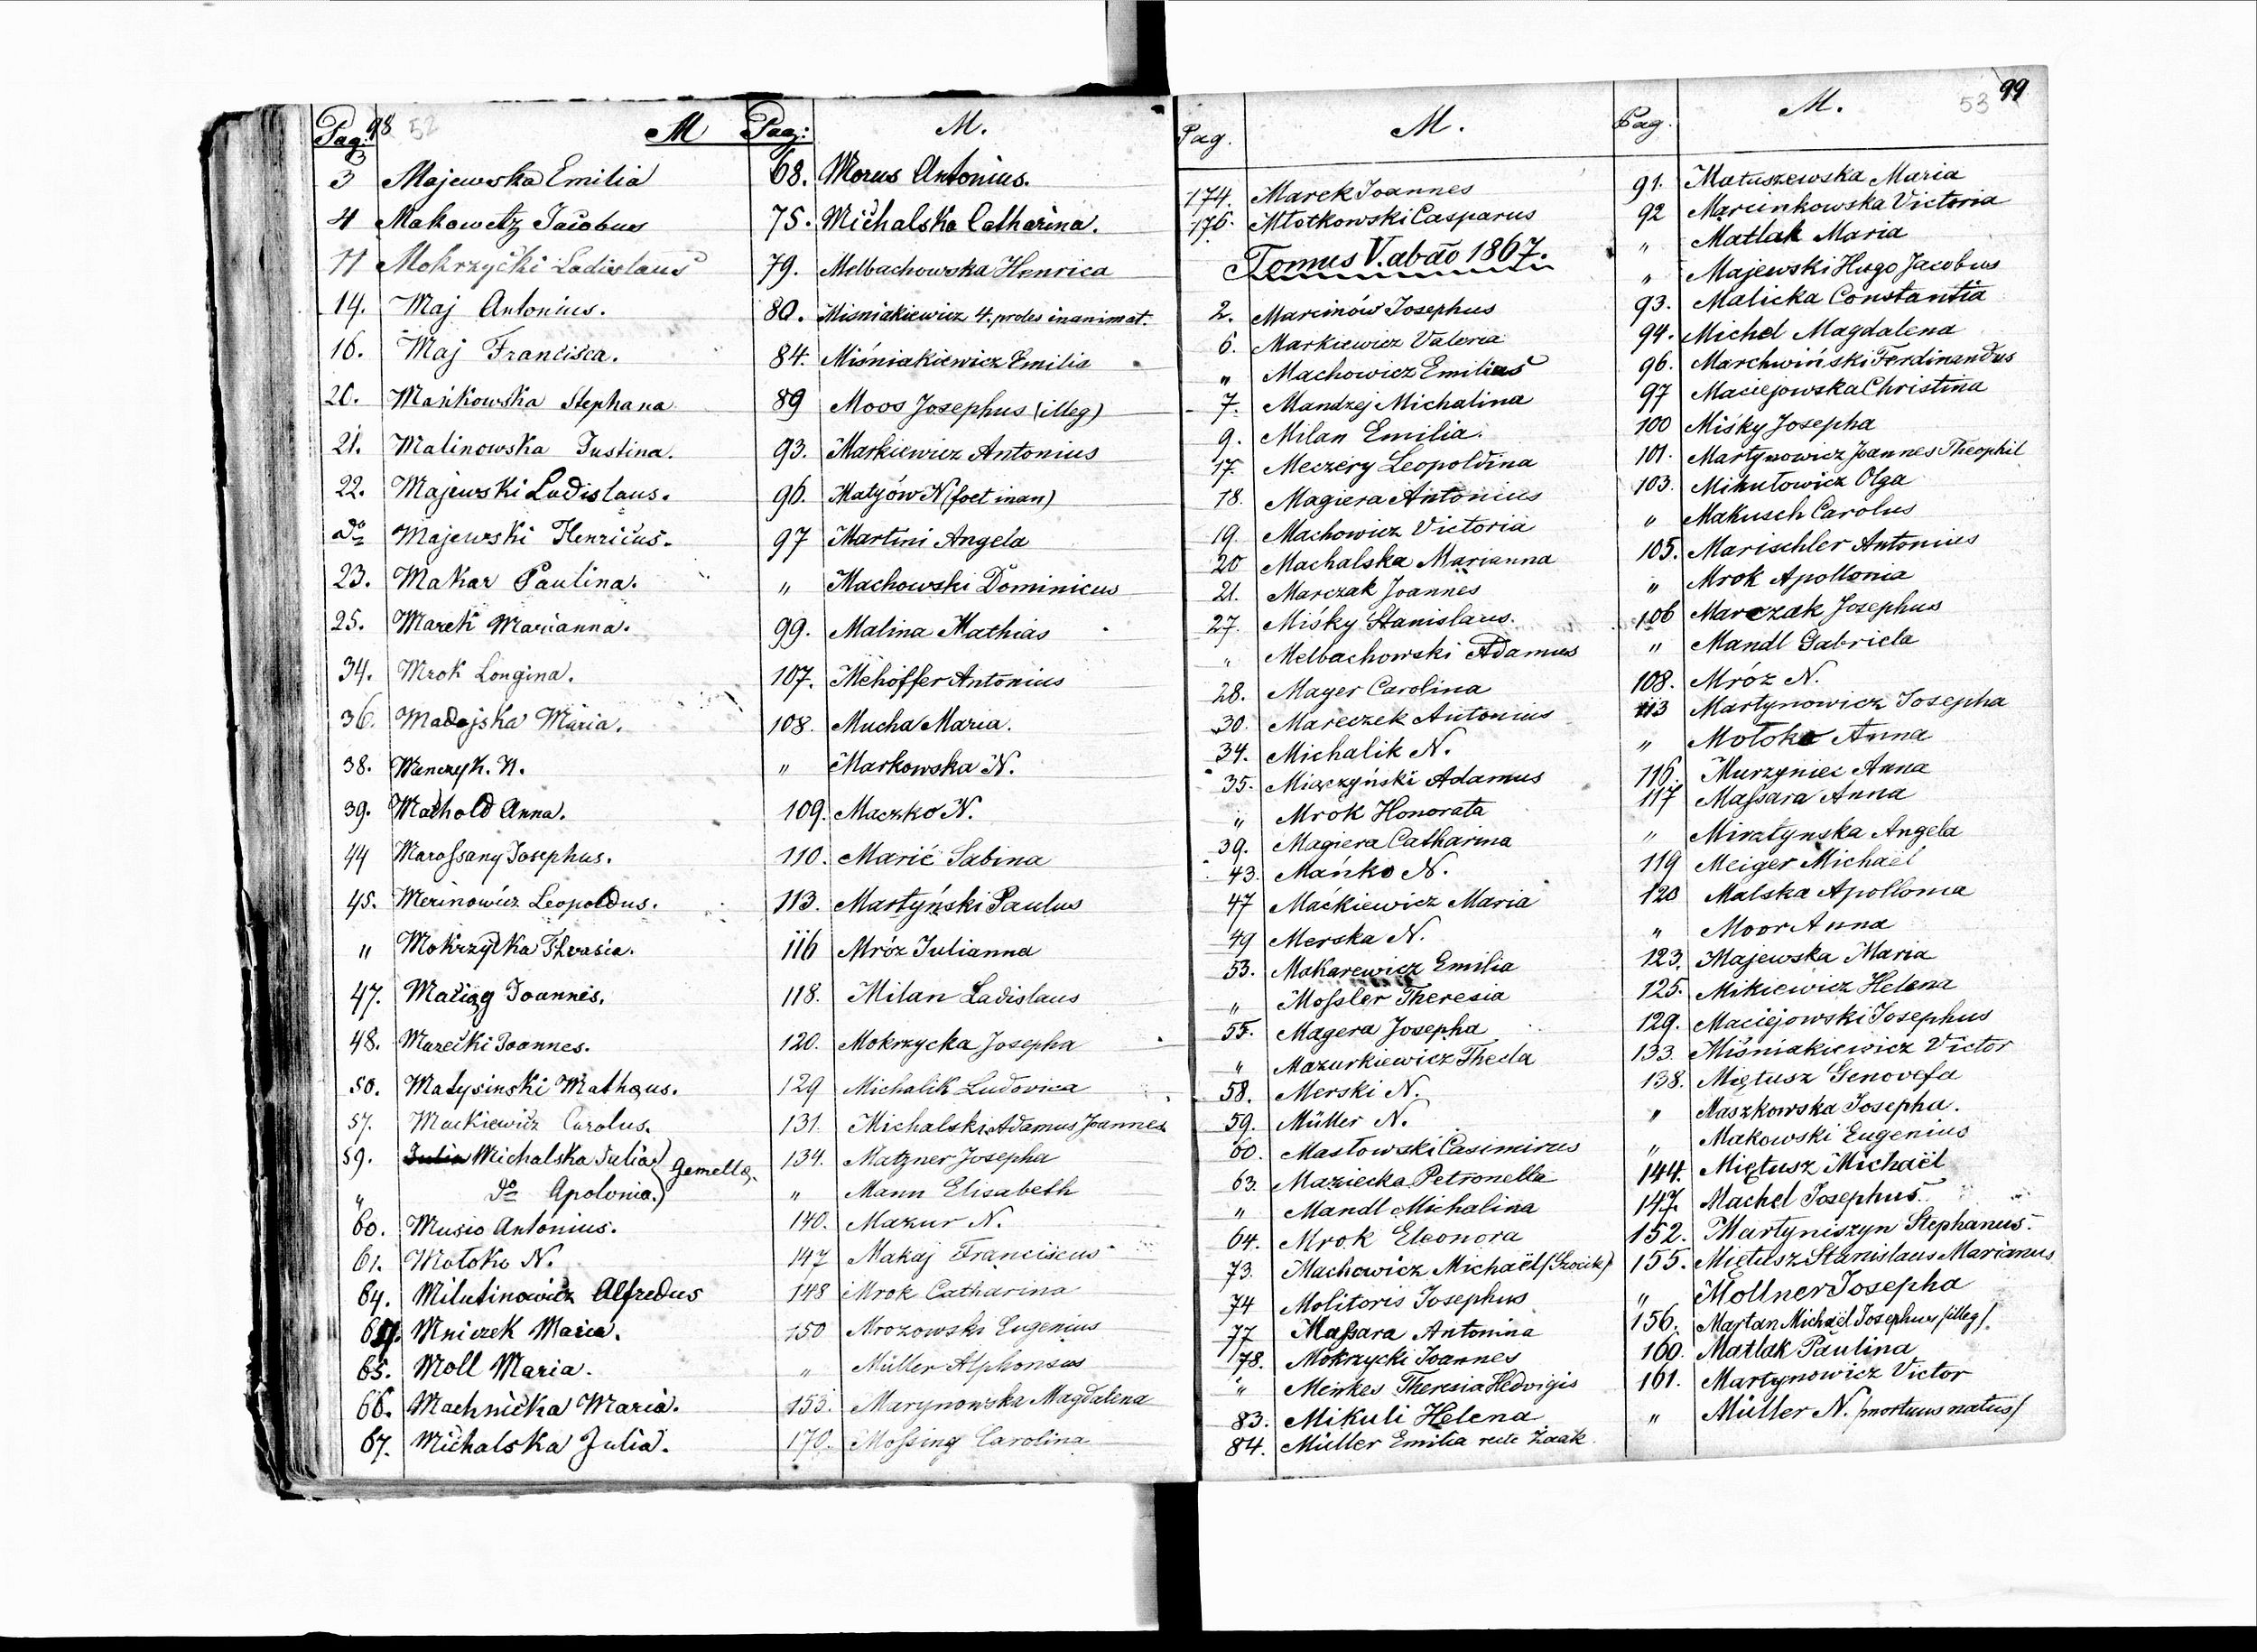 Pag: 98 52 M
3 Majewska Emilia
4 Makowetz Jacobus
11 Mokrzycki Ladislaus
14. Maj Antonius.
16. Maj Francisca.
20. Mańkowska Stephana
21. Malinowska Justina.
22. Majewski Ladislaus.
do Majewski Henricus.
23. Makar Paulina.
25. Marek Marianna.
34. Mrok Longina.
36. Madejska Maria.
38. Menczyk. N.
39. Machold Anna.
44 Maroſsany Josephus.
45. Merinowicz Leopoldus.
" Mokrzycka Thrasia.
47. Maciąg Joannes.
48. Marecki Joannes.
50. Matysinski Mathæus.
57. Mackiewicz Carolus.
59. Julia Michalska Julia) Gemellæ
" do Apolonia.)
60. Musio Antonius.
61. Motoko N.
64. Milutinowicz Alfredus
Mniczek Maria.
65. Moll Maria.
66. Machnicka Maria.
67. Michalska Julia.
Pag: M.
68. Morus Antonius.
75. Michalska Catharina.
79. Melbachowska Henrica
80. Miśniakiewicz 4. proles inanimat.
84. Miśniakiewicz Emilia
89 Moos Josephus (illeg)
93. Markiewicz Antonius
96. Matyów N (foet inan)
97 Martini Angela
" Machowski Dominicus
99. Malina Mathias
107. Mehoffer Antonius
108. Mucha Maria.
" Markowska N.
109. Maczko N.
110. Marić Sabina
113. Martyński Paulus
116 Mróz Julianna
118. Milan Ladislaus
120. Mokrzycka Josepha
129 Michalik Ludovica
131. Michalski Adamus Joannes
134. Matzner Josepha
" Mann Elisabeth
140. Mazur N.
147 Makaj Franciscus
148 Mrok Catharina
150 Mrozowski Eugenius
" Müller Alphonsus
153. Marynowska Magdalena
170. Moſsing Carolina
Pag. M.
174. Marek Joannes
176. Młotkowski Casparus
Tomus V. ab ao 1867.
2. Marcinów Josephus
6. Markiewicz Valeria
" Machowicz Emilius
7. Mandzej Michalina
9. Milan Emilia.
17. Meczery Leopoldina
18. Magiera Antonius
19. Machowicz Victoria
20 Machalska Marianna
21. Marczak Joannes
27. Miśky Stanislaus.
" Melbachowski Adamus
28. Mayer Carolina
30. Mareczek Antonius
34. Michalik N.
35. Miączyński Adamus
" Mrok Honorata
39. Magiera Catharina
43. Mańko N.
47 Maćkiewicz Maria
49 Merska N.
53. Makarewicz Emilia
" Moſsler Theresia
55. Magera Josepha
" Mazurkiewicz Thecla
58. Merski N.
59. Müller N.
60. Masłowski Casimirus
63. Maziecka Petronella
" Mandl Michalina
64. Mrok Eleonora
73. Machowicz Michaël (Szocik)
74 Molitoris Josephus
77 Maſsara Antonina
78. Mokrzycki Joannes
" Menkes Theresia Hedvigis
83. Mikuli Helena
84. Müller Emilia recte Zaak
Pag. M. 53 99
91. Matuszewska Maria
92 Marcinkowska Victoria
" Matlak Maria
" Majewski Hugo Jacobus
93. Malicka Constantia
94. Michel Magdalena
96. Marchwiński Ferdinandus
97 Maciejowska Christina
100 Miśky Josepha
101. Martynowicz Joannes Theophil
103. Mikułowicz Olga
" Makusch Carolus
105. Marischler Antonius
" Mrok Apollonia
106 Marczak Josephus
" Mandl Gabriela
108. Mróz N.
113 Martynowicz Josepha
" Motoko Anna
116. Murzyniec Anna
117 Maſsara Anna
" Miratynska Angela
119 Meiger Michaël
120 Malska Apollonia
" Moor Anna
123. Majewska Maria
125. Mikiewicz Helena
129. Maciejowski Josephus
133. Miśniakiewicz Victor
138. Miętusz Genovefa
" Maszkowska Josepha.
" Makowski Eugenius
144. Miętusz Michaël
147. Machel Josephus
152. Martyniszyn Stephanus.
155. Miętusz Stanislaus Marianus
" Mollner Josepha
156. Majtan Michaël Josephus /illeg/.
160. Matlak Paulina
161. Martynowicz Victor
" Müller N. /mortuus natus/